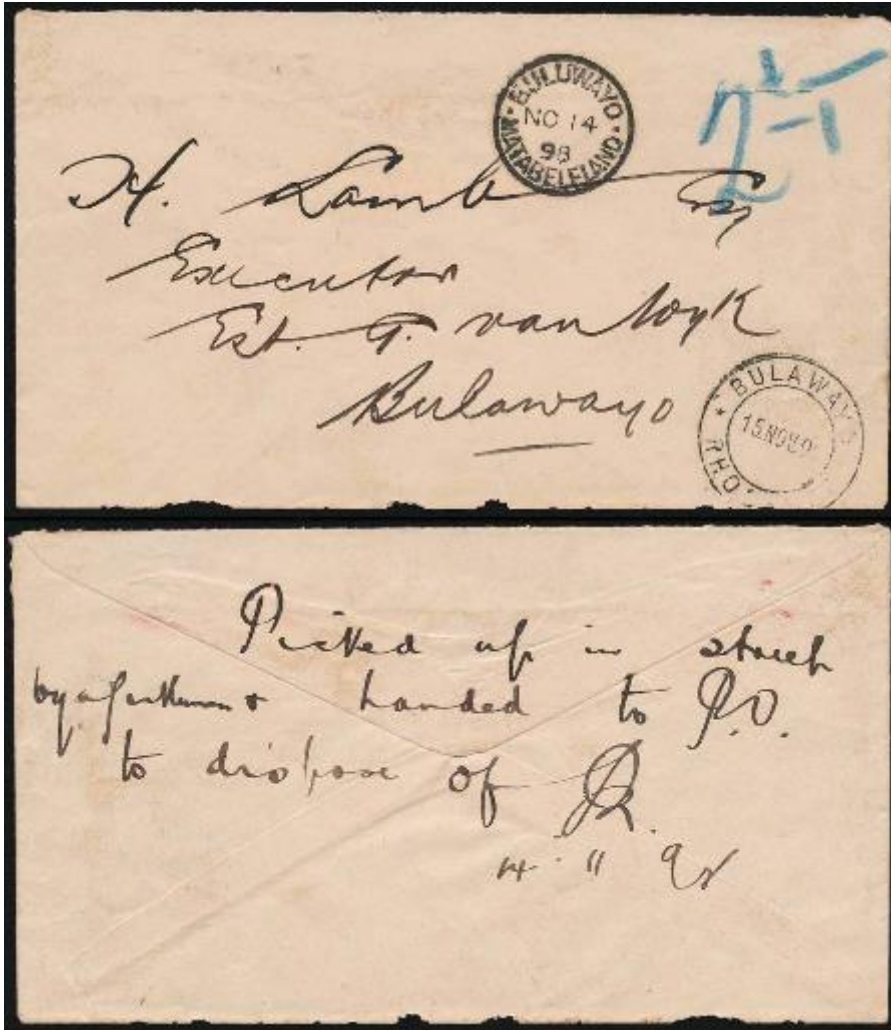 BULUWAYO
NO 14
98
MATABELELAND
H. Lamb Esq
Executor
Est. P. van Wyk
Bulawayo
BULAWAYO
15 NOV
RHO
Picked up in street
by a gentleman & handed to P.O.
to dispose of
14 11 98